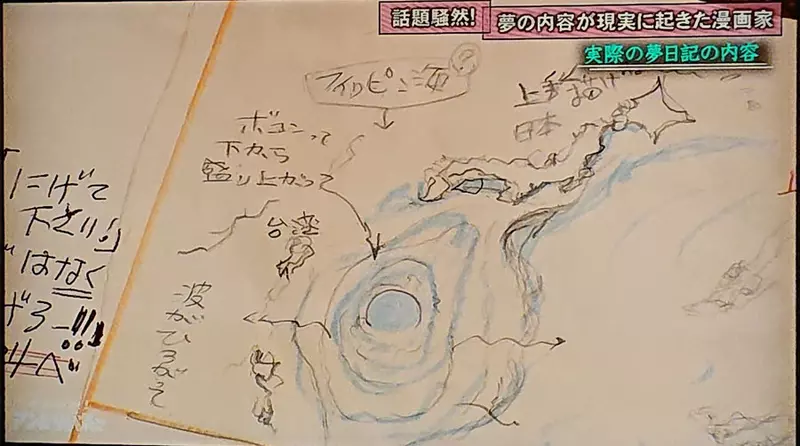 話題騒然!
夢の内容が現実に起きた漫画家
実際の夢日記の内容
フィリピン海?
上手く描け
日本
ボコンって
下から
盛り上がって
台湾
波が
ひろがって
にげて
下さい!」
はなく
げろー!!!